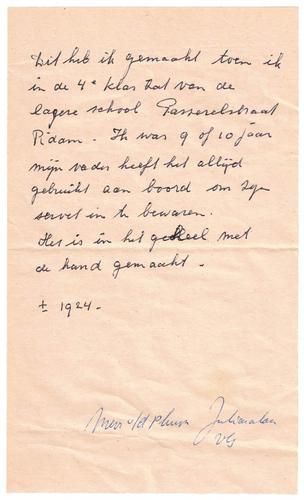 Dit heb ik gemaakt toen ik
in de 4e klas zat van de
lagere school Passerelstraat
R'dam. Ik was 9 of 10 jaar
mijn vader heeft het altijd
gebruikt aan boord om zijn
servet in te bewaren.
Het is in het geheel met
de hand gemaakt -
± 1924 -
Mevr v/d